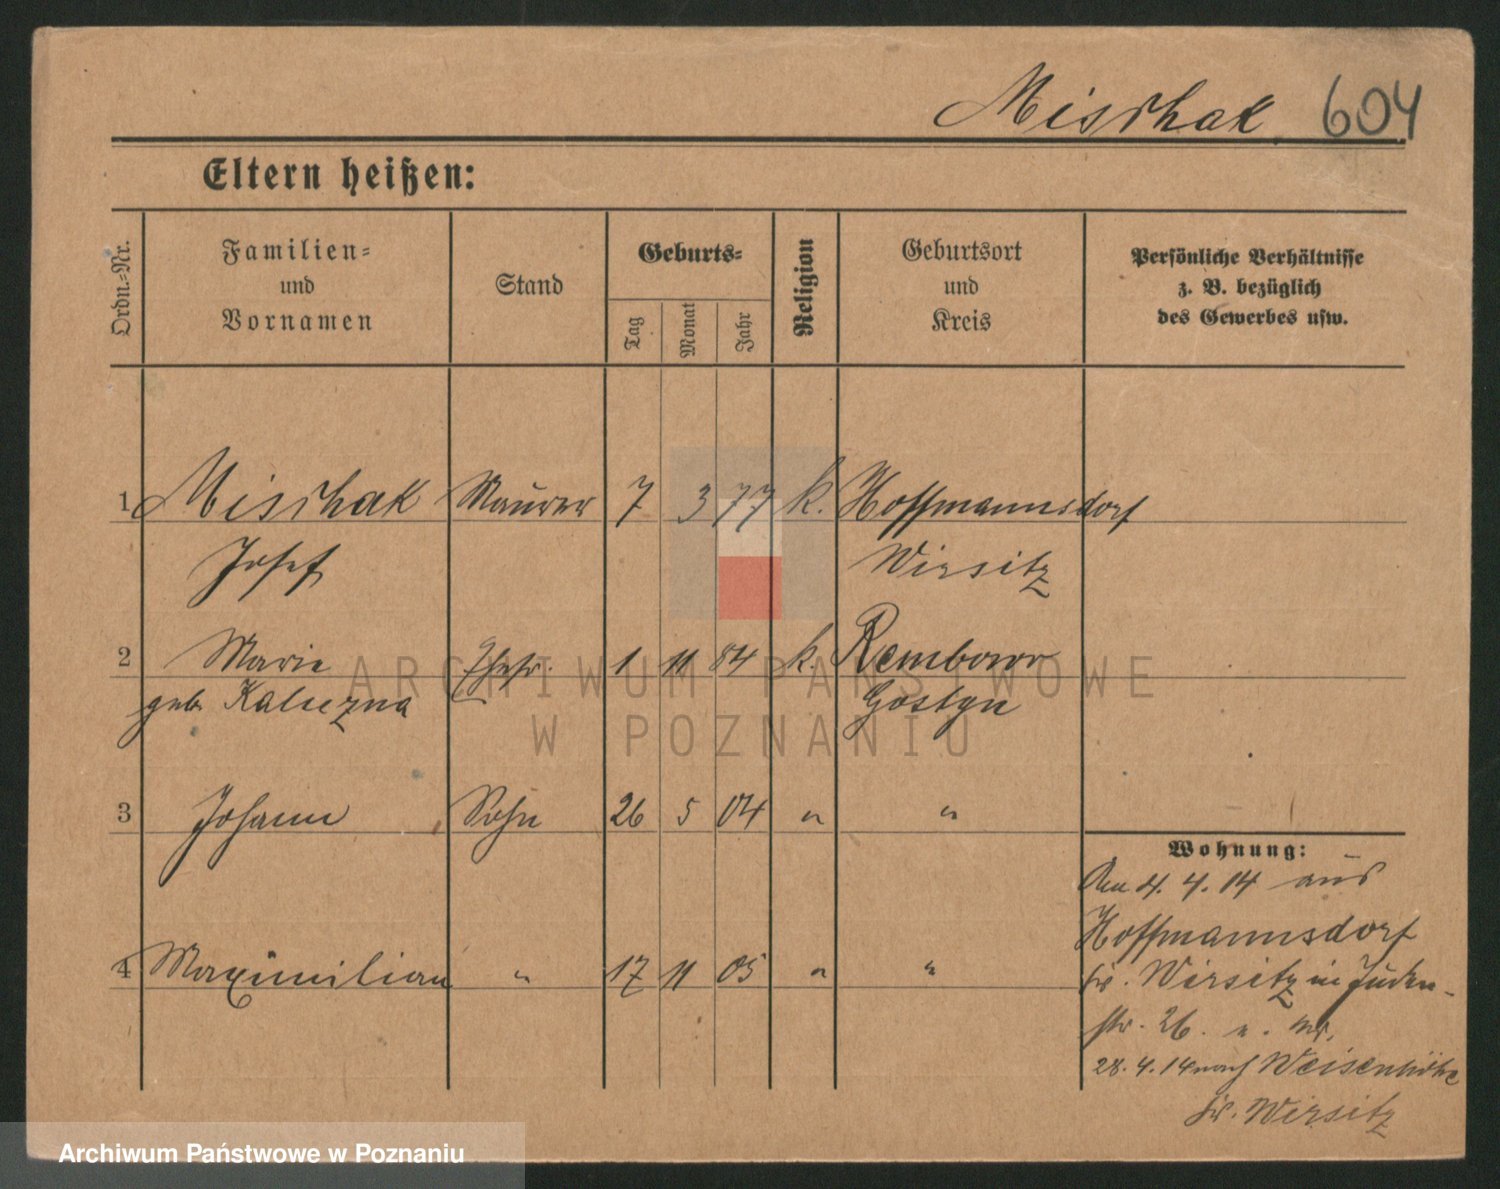 Mischak 604
Eltern heißen:
Ordn.=Nr.
Familien=
und
Vornamen
Stand
Geburts=
Tag
Monat
Jahr
Religion
Geburtsort
und
Kreis
Persönliche Verhältnisse
z. B. bezüglich
des Gewerbes usw.
1 Mischak Maurer 7 3 77 k. Hoffmannsdorf
Josef Wirsitz
2 Marie Ehefr. 1 11 84 k. Rembowo
geb. Kaluzna Gostyn
3 Johann Sohn 26 5 04 " "
4 Maximilian " 17 11 05 " "
Wohnung:
Am 4. 4. 14 aus
Hoffmannsdorf
Kr. Wirsitz in Juden-
str. 26.
28. 4. 14 nach Weisenhöhe
Kr. Wirsitz
ARCHIWUM PAŃSTWOWE
W POZNANIU
Archiwum Państwowe w Poznaniu